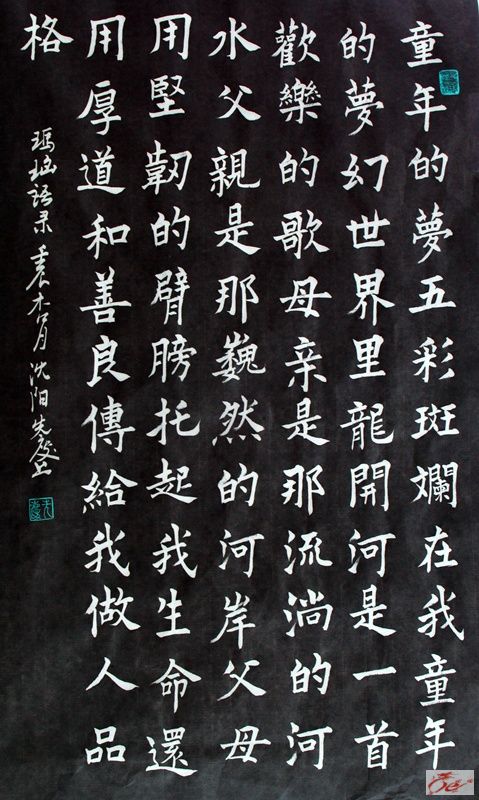 童年的夢五彩斑斕在我童年
的夢幻世界里龍開河是一首
歡樂的歌母亲是那流淌的河
水父親是那巍然的河岸父母
用堅韌的臂膀托起我生命還
用厚道和善良傳給我做人品
格
语录 沈阳